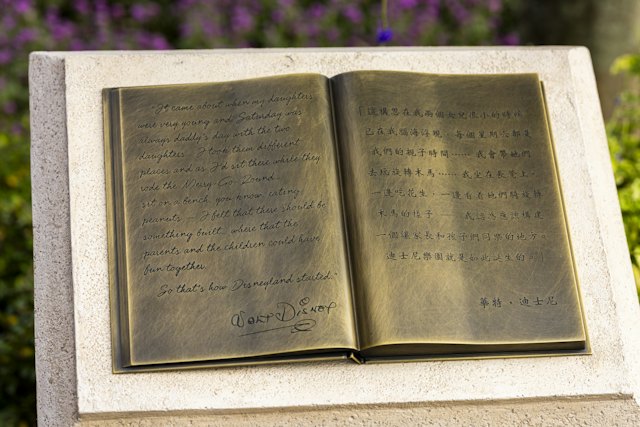 "It came about when my daughters
were very young and Saturday was
always daddy's day with the two
daughters. I took them different
places and as I'd sit there while they
rode the Merry-Go-Round...
sit on a bench, you know, eating
peanuts — I felt that there should be
something built... where that the
parents and the children could have
fun together.
So that's how Disneyland started."
Walt Disney
「這構思在我兩個女兒很小的時候
已在我腦海浮現。每個星期六都是
我們的親子時間……我會帶她們
去玩旋轉木馬……我坐在長凳上，
一邊吃花生，一邊看着她們騎旋轉
木馬的樣子……我認為應該構建
一個讓家長和孩子們同樂的地方。
迪士尼樂園就是如此誕生的。」
華特·迪士尼